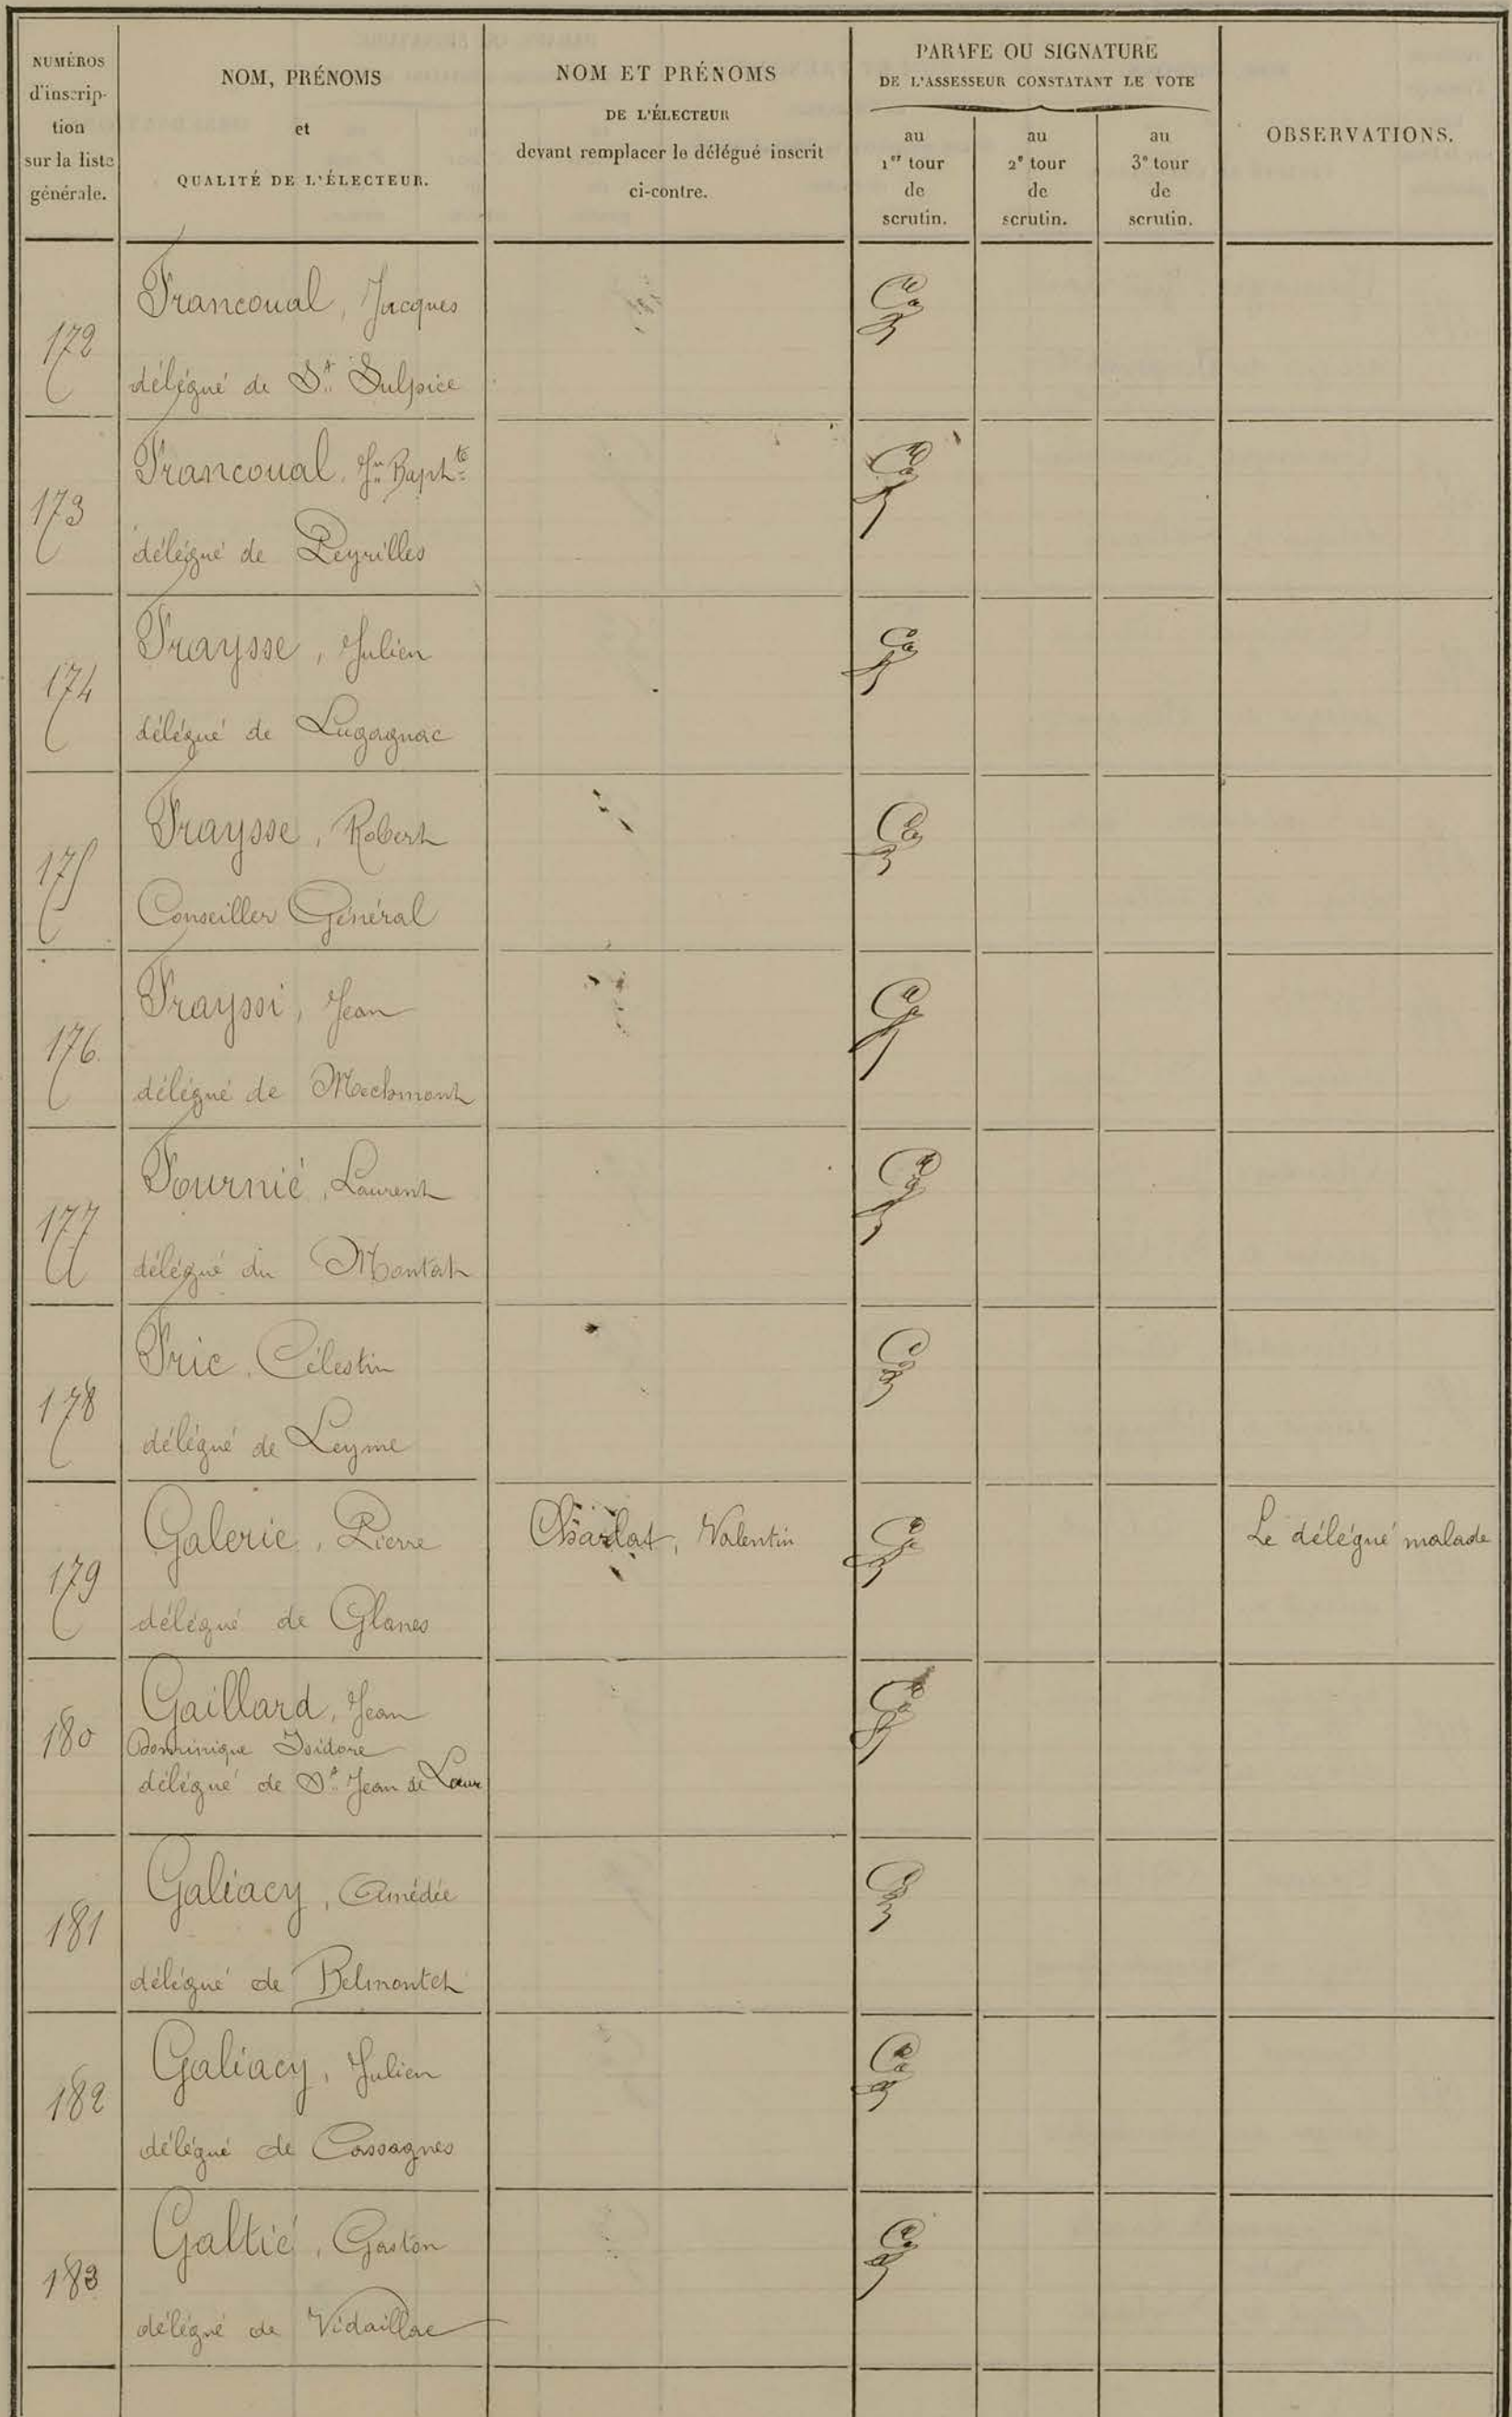 NUMÉROS
d'inscrip-
tion
sur la liste
générale.
NOM, PRÉNOMS
et
QUALITÉ DE L'ÉLECTEUR.
NOM ET PRÉNOMS
DE L'ÉLECTEUR
devant remplacer le délégué inscrit
ci-contre.
PARAFE OU SIGNATURE
DE L'ASSESSEUR CONSTATANT LE VOTE
au
1er tour
de
scrutin.
au
2e tour
de
scrutin.
au
3e tour
de
scrutin.
OBSERVATIONS.
172
Francoual, Jacques
délégué de St Sulpice
173
Francoual, Jn Bapte
délégué de Peyrilles
174
Fraysse, Julien
délégué de Lugagnac
175
Fraysse, Robert
Conseiller Général
176
Frayssi, Jean
délégué de Mechmont
177
Fournié, Laurent
délégué du Montat
178
Fric, Célestin
délégué de Leyme
179
Galerie, Pierre
Charlat, Valentin
Le délégué malade
délégué de Glanes
180
Gaillard, Jean
Dominique Isidore
délégué de St Jean de Laur
181
Galiacy, Amédée
délégué de Belmontet
182
Galiacy, Julien
délégué de Cassagnes
183
Galtié, Gaston
délégué de Vidaillac